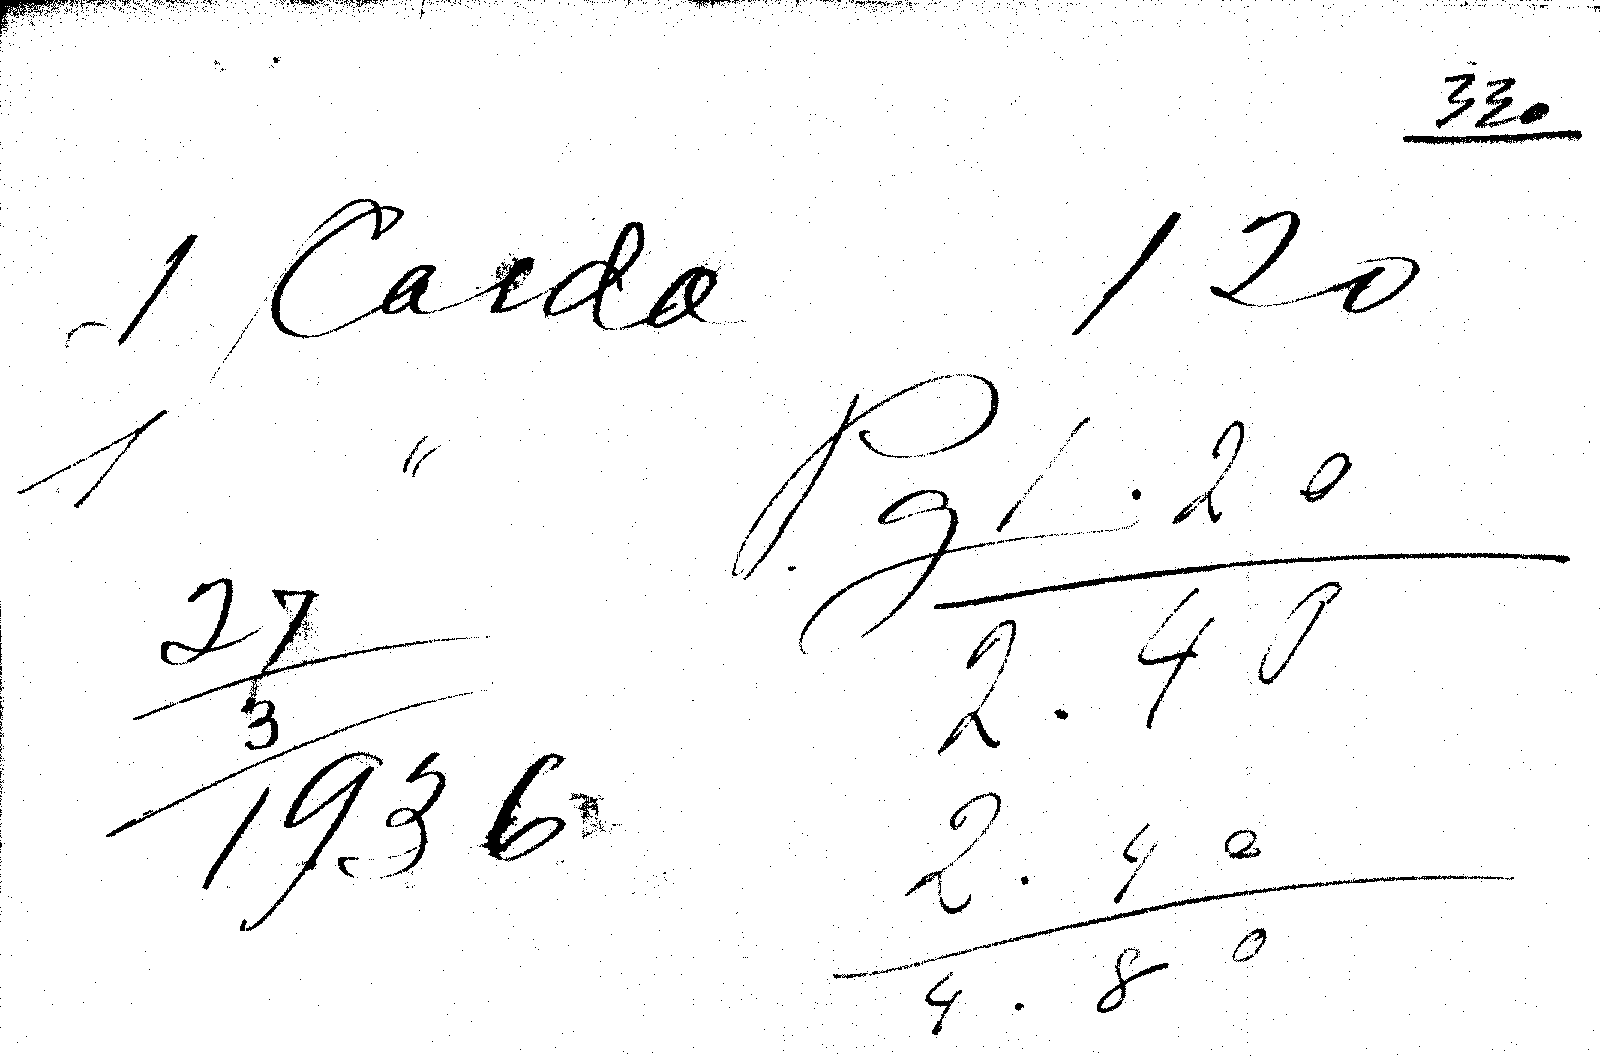 330
1 Cardo 120
1 " Pg 1.20
2.40
27
3
1936
2.40
4.80